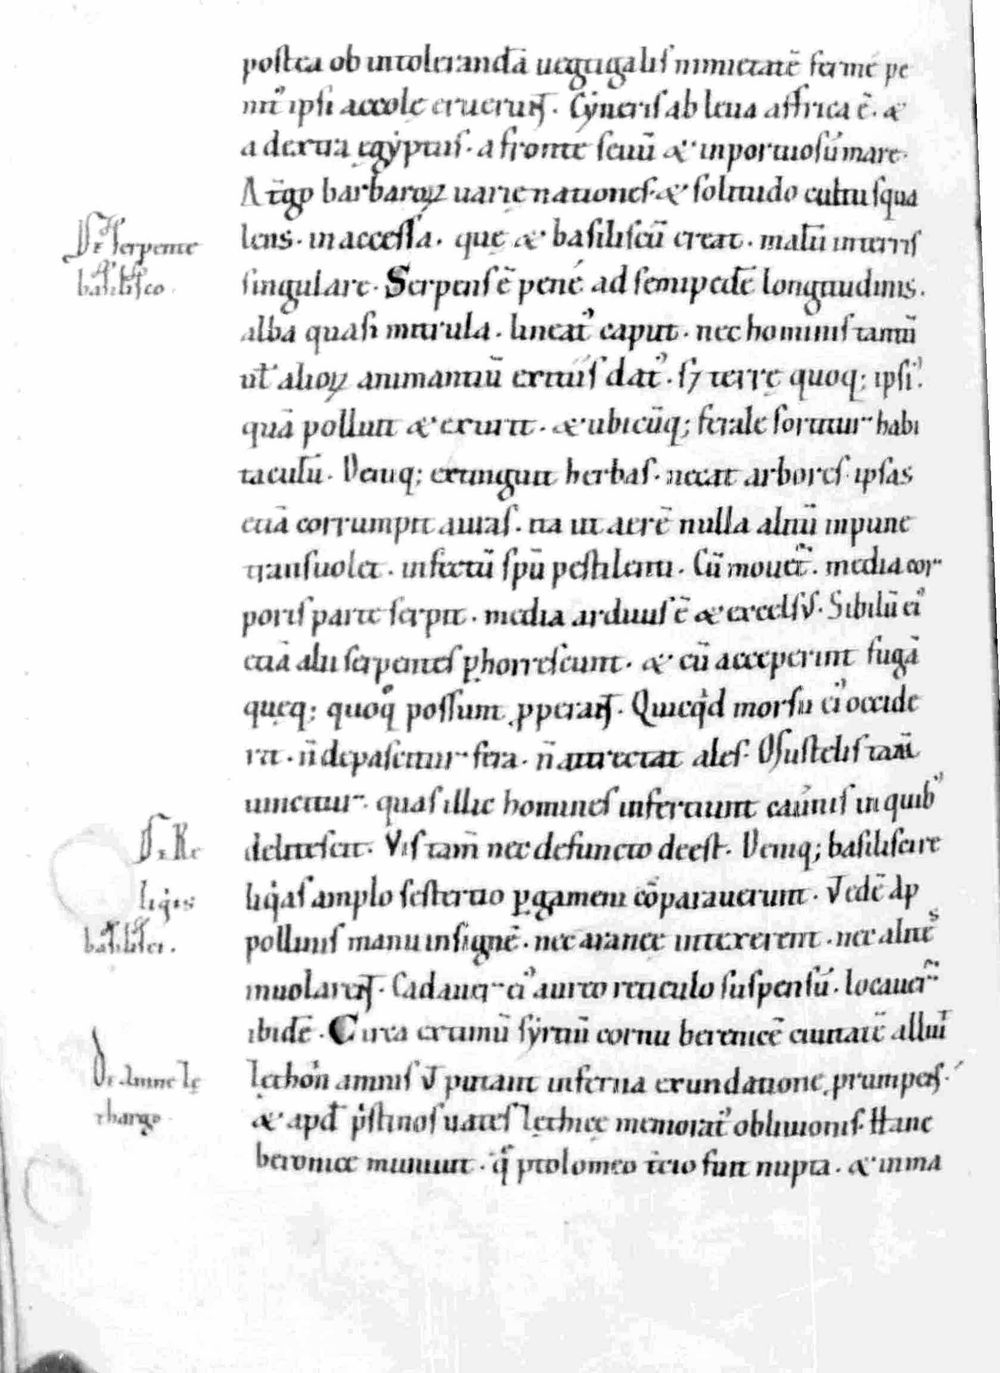 postea ob intolerandā uectigalis nimietatē ferme pe
nit᾽ ipsi accole eruerūt. Cyneris ab leua affrica ē. &
a dextra egyptus. a fronte seuū & inportuosū mare.
A tgo barbaroꝝ uarie nationes. & solitudo cultu squa
De serpente
lens. inaccessa. que & basiliscū creat. malū in terris
basilisco.
singulare. Serpens ē pene ad semipedē longitudinis.
alba quasi mitrula. lineat᾽ caput. nec hominis tantū
ut̄ alioꝝ animantiū exitiis dat᾽. sꝫ terrę quoq; ipsi᾽.
quā polluit & exurit. & ubicūq; ferale sortitur habi
taculū. Deniq; extinguit herbas. necat arbores ipsas
etiā corrumpit auras. ita ut aerē nulla alitū inpune
transuolet. infectū spū pestilenti. Cū mouet̄. media cor
poris parte serpit. media arduus ē & excelsꝰ. Sibilū ei᾽
etiā alii serpentes ꝑhorrescunt. & cū acceperint fugā
queq; quoqͦ possunt ꝓperant. Quicqͥd morsu ei᾽ occide
rit. n̄ depascitur fera. n̄ attrectat ales. Mustelis tam̄
uincitur. quas illic homines inferciunt cauernis in quib᾽
De Re
delitescit. Vis tam̄ nec defuncto deest. Deniq; basilisci re
liqͥis
liqͥas amplo sestertio ꝑgameni cōparauerunt. Vt edē Ap
basilisci.
pollinis manu insignē. nec aranee intexerent. nec alites
inuolarent. Cadauer ei᾽ aureo reticulo suspensū. locauer̄
ibidē. Circa extimū syrtiū cornu berenicē ciuitatē alluit
De Amne le
lethon amnis ut̄ putant inferna exundatione ꝓrumpens.
thargo
& apd̄ pͥstinos uates lethee memorat᾽ obliuionis. Hanc
beronice muniuit. q̄ ptolomeo tͤcio fuit nupta. & in ma